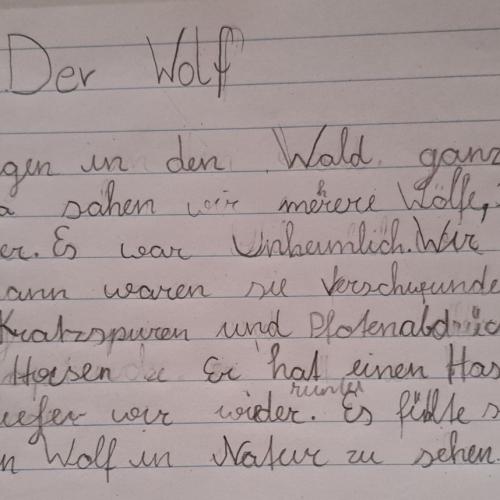 Der Wolf
gen in den Wald ganz
a sahen wir mehrere Wölfe,
er. Es war Unheimlich. Wir
ann waren sie Verschwunde
Kratzspuren und Pfotenabdrüc
Er hat einen Has
runter
uefen wir wieder. Es fühlte s
n Wolf in Natur zu sehen.